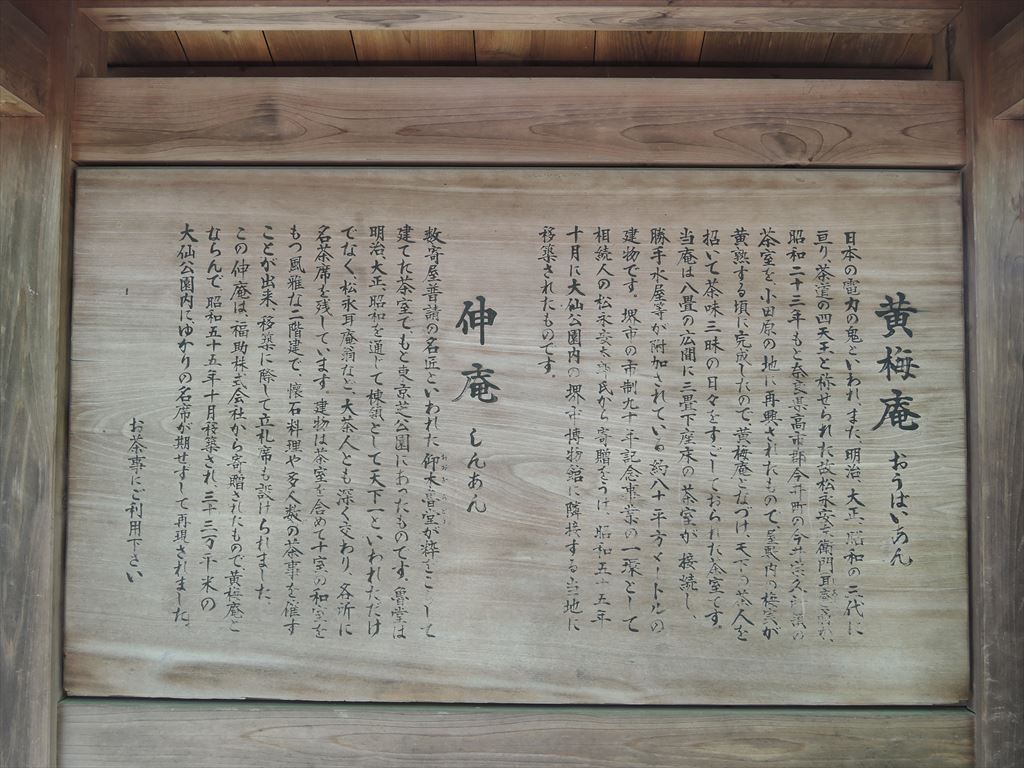 黄梅庵 おうばいあん
日本の電力の鬼といわれ、また、明治、大正、昭和の三代に
亘り、茶道の四天王と称せられた故松永安左衛門耳庵翁が、
昭和二十三年もと奈良県高市郡今井町の今井宗久ゆかりの
茶室を、小田原の地に再興されたもので、邸内の梅実が
黄熟する頃に完成したので、黄梅庵となづけ、天下の茶人を
招いて茶味三昧の日々をすごしておられた茶室です。
当庵は八畳の広間に三畳下座床の茶室が接続し、
勝手水屋等が附加されている約八十平方メートルの
建物です。堺市の市制九十年記念事業の一環として
相続人の松永安太郎氏から寄贈をうけ、昭和五十五年
十月に大仙公園内の堺市博物館に隣接する当地に
移築されたものです。
伸庵 しんあん
数寄屋普請の名匠といわれた仰木魯堂が粋をこらして
建てた茶室で、もと東京芝公園にあったものです。魯堂は
明治、大正、昭和を通じて棟領として天下一といわれただけ
でなく、松永耳庵翁など、大茶人とも深く交わり、各所に
名茶席を残しています。建物は茶室を含めて十室の和室を
もつ風雅な二階建で、懐石料理や多人数の茶事を催す
ことが出来、移築に際して立礼席も設けられました。
この伸庵は、福助株式会社から寄贈されたもので黄梅庵と
ならんで、昭和五十五年十月移築され、三十三万平米の
大仙公園内にゆかりの名席が期せずして再現されました。
お茶事にご利用下さい